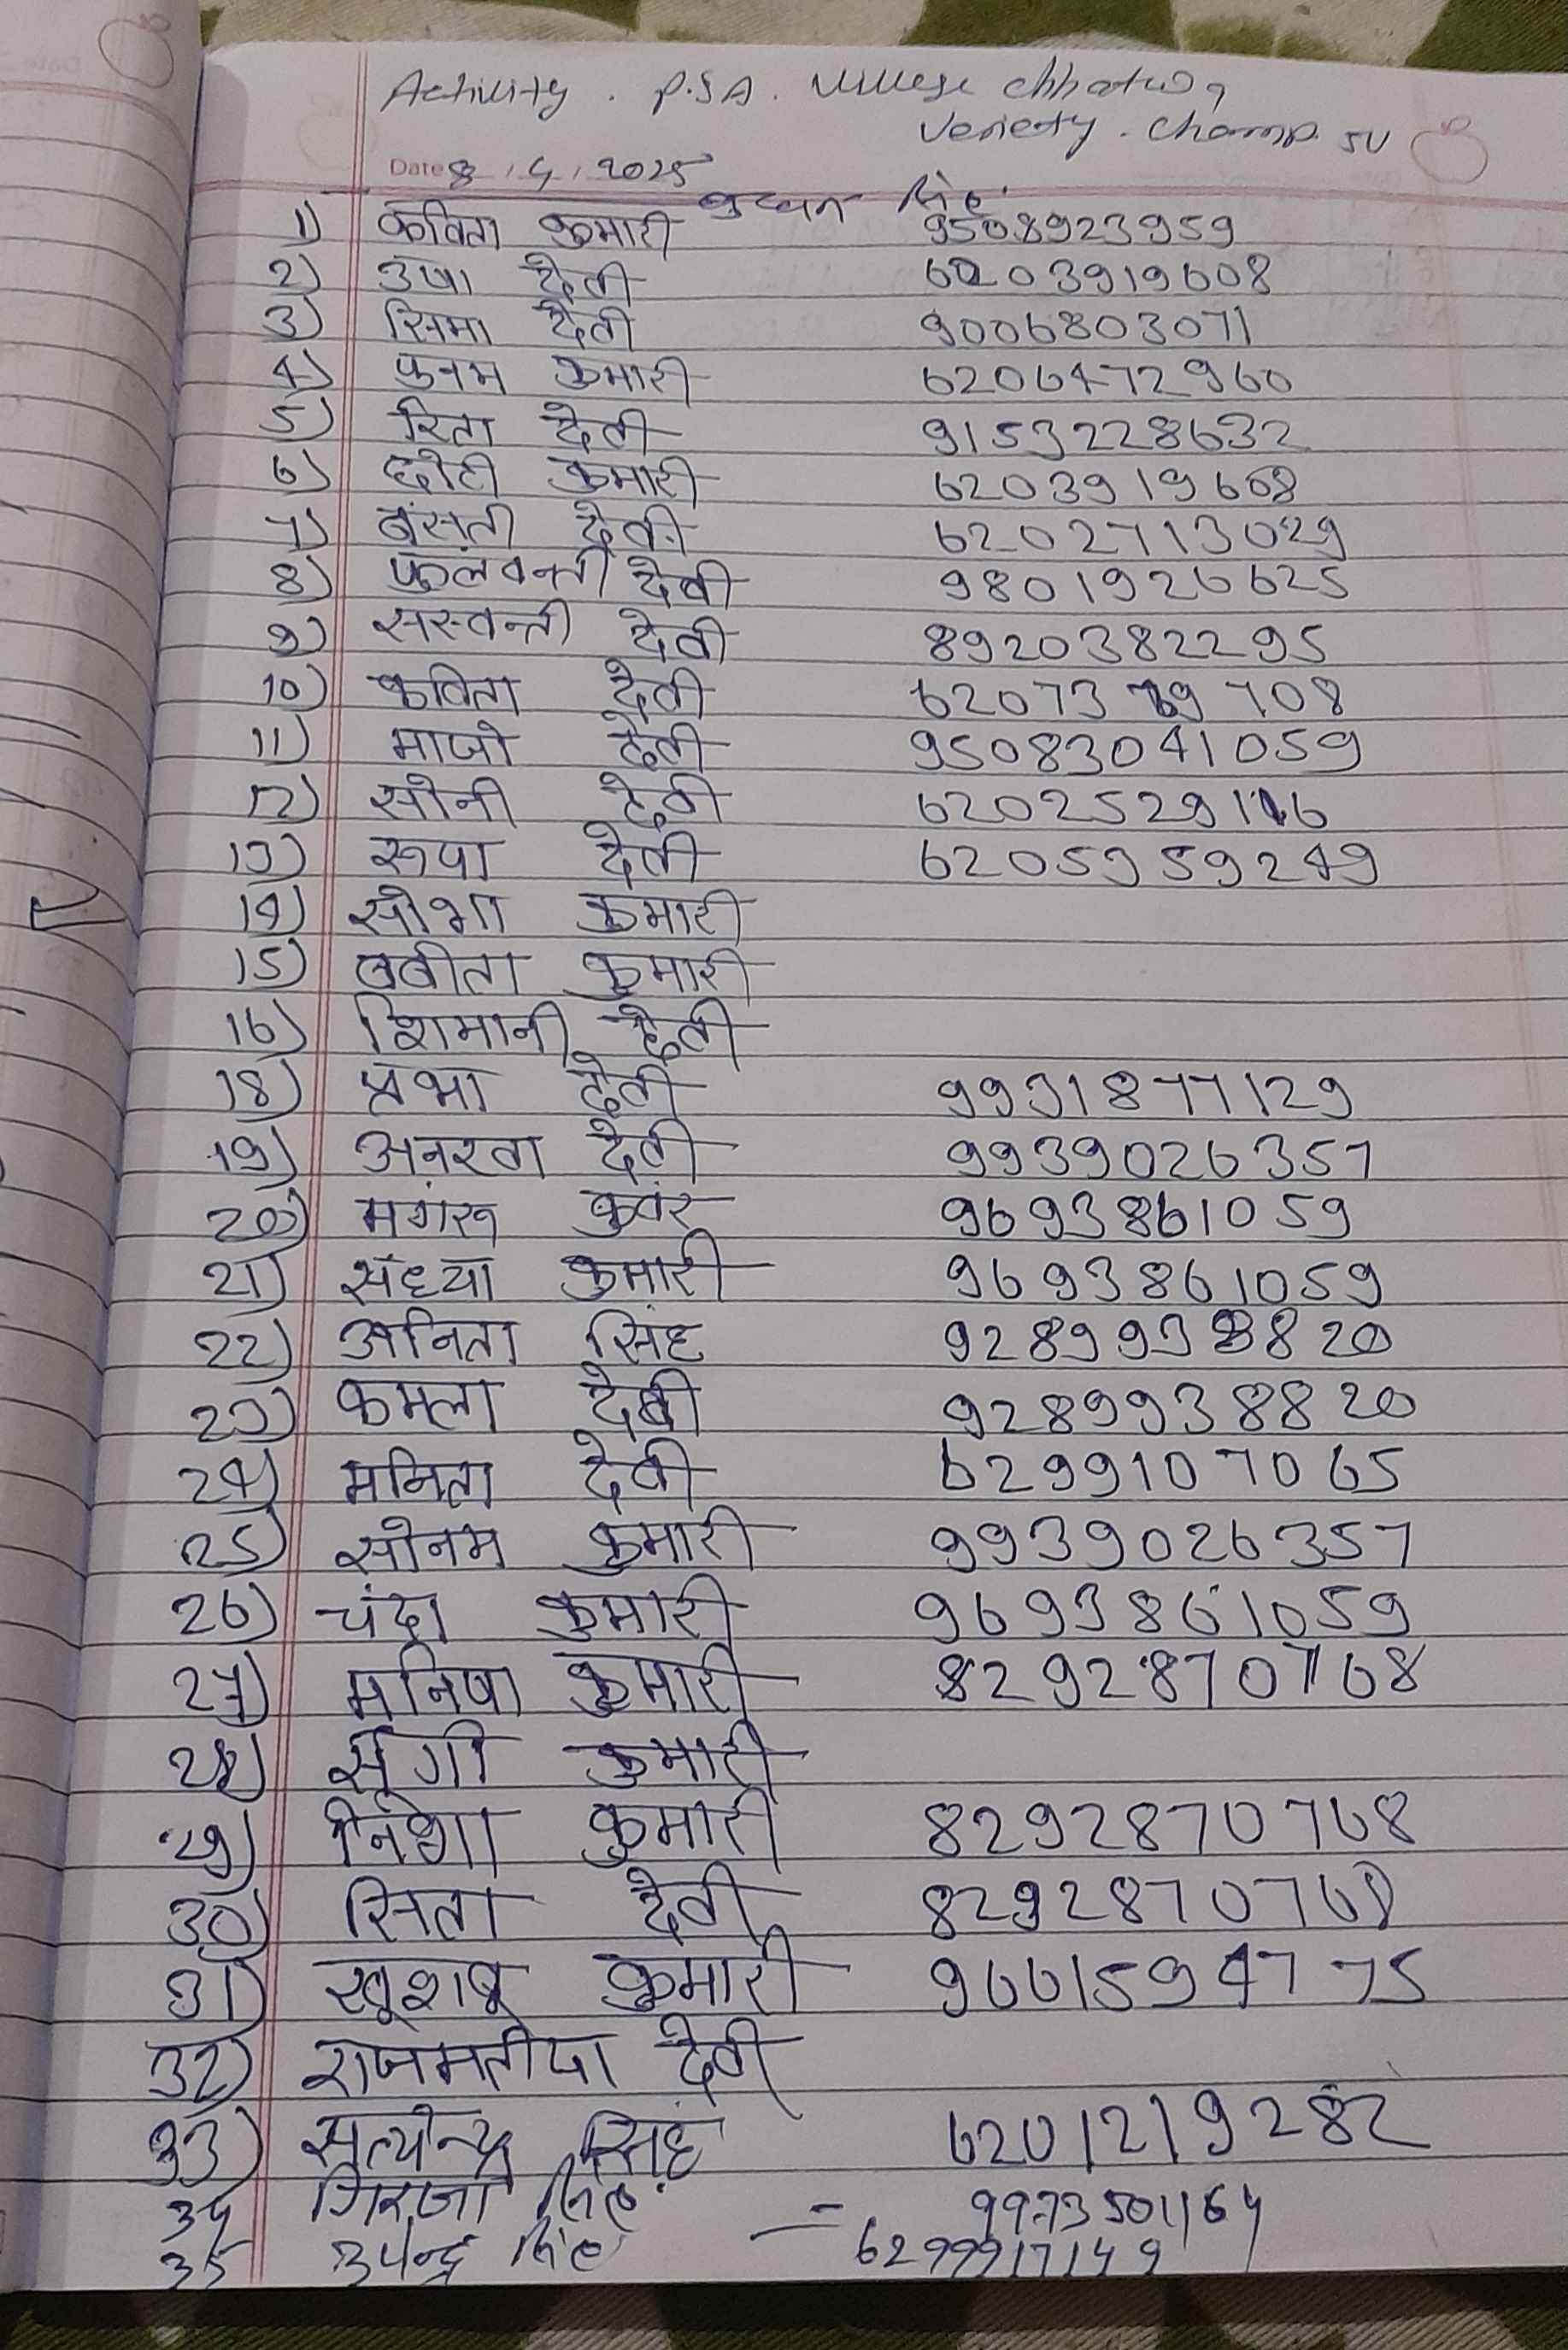 Activity . P.S.A. Village chhatwa
Veriety . Champ. 50
Date 8 / 4 / 2025
सिंह
1) कविता कुमारी 9508923959
2) उषा देवी 6203919608
3) सिमा देवी 9006803071
4) पुनम कुमारी 6206472960
5) रिता देवी 9153228632
6) छोटी कुमारी 6203919608
7) बंसती देवी 6202713029
8) फुलवन्ती देवी 9801926625
9) सस्वन्ती देवी 8920382295
10) कविता देवी 6207379708
11) माजो देवी 95083041059
12) सोनी देवी 6202529116
13) रूपा देवी 6205959249
14) सोभा कुमारी
15) बबीता कुमारी
16) शिमानी देवी
18) प्रभा देवी 9931877129
19) अनरवा देवी 9939026357
20) मगरू कुवंर 9693861059
21) संध्या कुमारी 9693861059
22) अनिता सिंह 9289938820
23) कमला देवी 9289938820
24) मनिता देवी 6299107065
25) सोनम कुमारी 9939026357
26) चंदा कुमारी 9693861059
27) मनिषा कुमारी 8292870768
28) मूंगी कुमारी
29) निशा कुमारी 8292870768
30) सिता देवी 8292870768
31) खूशबू कुमारी 9661594775
32) राजमतीया देवी
33) सत्येन्द्र सिंह 6201219282
34 गिरजा सिंह = 9973501164
35 उपेन्द्र सिंह 6299917149